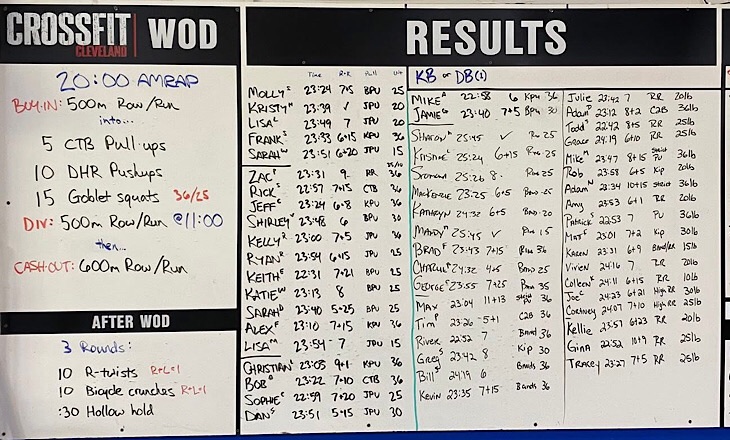 CROSSFIT CLEVELAND WOD
20:00 AMRAP
BUY-IN: 500m Row/Run
into...
5 CTB Pullups
10 DHR Pushups
15 Goblet squats 36/25
DIV: 500m Row/Run @11:00
then...
CASHOUT: 600m Row/Run
AFTER WOD
3 Rounds:
10 R-twists R+L=1
10 Bicycle crunches R+L=1
:30 Hollow hold
RESULTS
Time R+R Pull Wt
MOLLY 23:24 7+5 BPU 25
KRISTY 23:39 ✓ JPU 20
LISA 23:49 7 JPU 20
FRANK 23:33 6+15 KPU 36
SARAH 23:51 6+20 JPU 15
ZAC 23:31 9 RR 36
RICK 22:57 7+15 CTB 36
JEFF 23:24 6+8 KPU 36
SHIRLEY 23:48 6 BPU 30
KELLY 23:00 7+5 JPU 36
RYAN 23:54 6+15 JPU 25
KEITH 22:31 7+21 BPU 25
KATIE 23:13 8 BPU 25
SARAH 23:40 5+25 BPU 25
ALEX 23:10 7+15 KPU 36
LISA 23:54 7 JPU 15
CHRISTIAN 23:03 9+1 KPU 36
BOB 23:22 7+10 CTB 36
SOPHIE 22:59 7+20 JPU 25
DAN 23:51 5+15 JPU 30
KB or DB(1)
MIKE 22:58 6 KPU 36
JAMIE 23:40 7+5 BPU 30
SHARON 25:45 ✓ 25
KRISTINE 25:24 6+15 25
25:26 8 25
MACKENZIE 23:25 6+5 Band 25
KATHRYN 24:32 6+5 Band 20
MANDY 25:45 ✓ 15
BRAD 23:43 7+15 36
24:32 4+5 Band 25
GEORGE 23:55 7+25 35
MAX 23:04 11+13 36
Tim 23:26 5+1 C2B 36
River 22:52 7 Band 36
Greg 23:42 8 Kip 30
Bill 24:19 6 Bands 36
Kevin 23:35 7+15 Bands 36
Julie 23:42 7 RR 20lb
Adam 23:12 8+2 C2B 36lb
Todd 22:42 8+5 RR 25lb
Grace 24:19 6+10 RR 25lb
Mike 23:47 8+15 Strict PU 36lb
Rob 23:58 6+5 Kip 20lb
Adam 23:34 10+15 Strict 36lb
Amy 23:53 6+1 RR 20lb
Patrick 22:53 7 PU 36lb
Mat 25:01 7+2 Kip 30lb
Karen 23:31 6+9 Band/RR 15lb
Vivien 24:16 7 RR 20lb
Colleen 24:11 6+15 RR 10lb
Joe 24:23 6+21 High RR 30lb
Courtney 24:07 7+10 High RR 25lb
Kellie 23:57 6+23 RR 20lb
Gina 22:52 10+9 RR 25lb
Tracey 23:27 7+5 RR 25lb